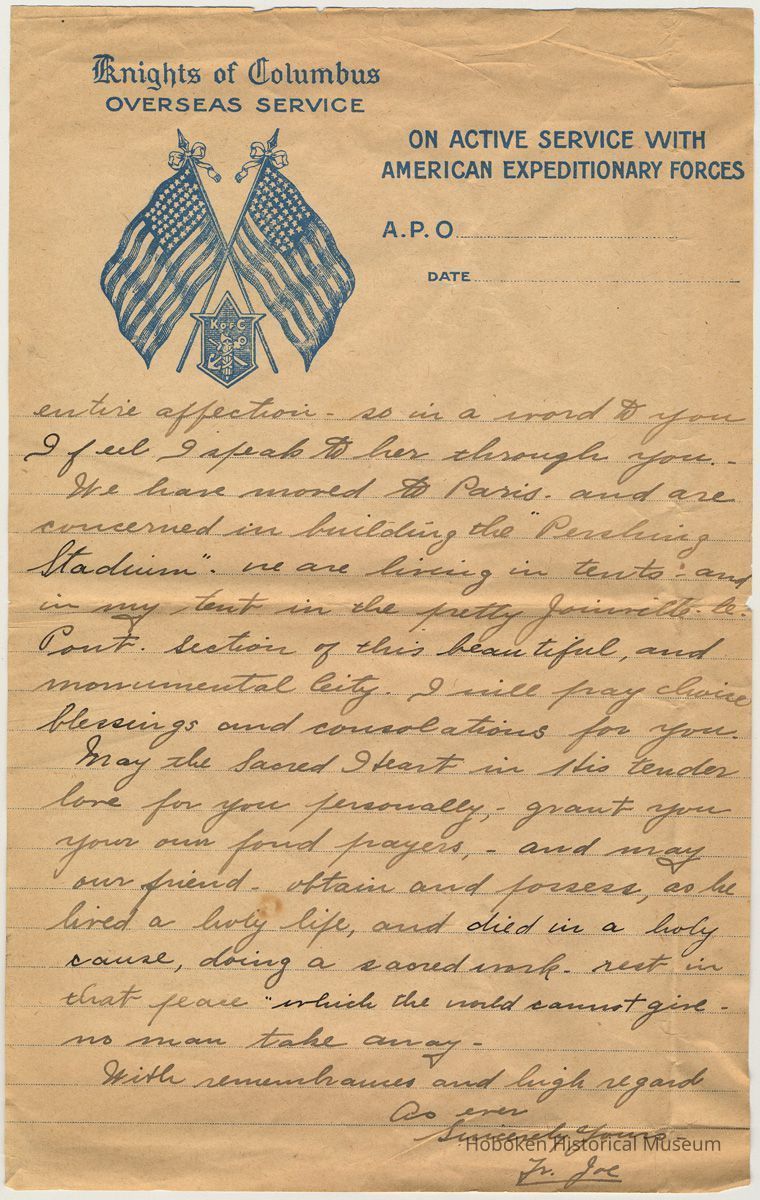 Knights of Columbus
OVERSEAS SERVICE
ON ACTIVE SERVICE WITH
AMERICAN EXPEDITIONARY FORCES
A.P.O.
DATE
K OF C
entire affection - so in a word to you
I feel I speak to her through you. -
We have moved to Paris. and are
concerned in building the "Pershing
Stadium". we are living in tents - and
in my tent in the pretty Joinville-le-
Pont. section of this beautiful, and
monumental City. I will pray choice
blessings and consolations for you.
May the Sacred Heart in His tender
love for you personally, - grant you
your own fond prayers, - and may
our friend - obtain and possess, as he
lived a holy life, and died in a holy
cause, doing a sacred work. rest in
that peace "which the world cannot give -
no man take away -
With remembrances and high regard
As ever
Sincerely Yours -
Fr. Joe
Hoboken Historical Museum